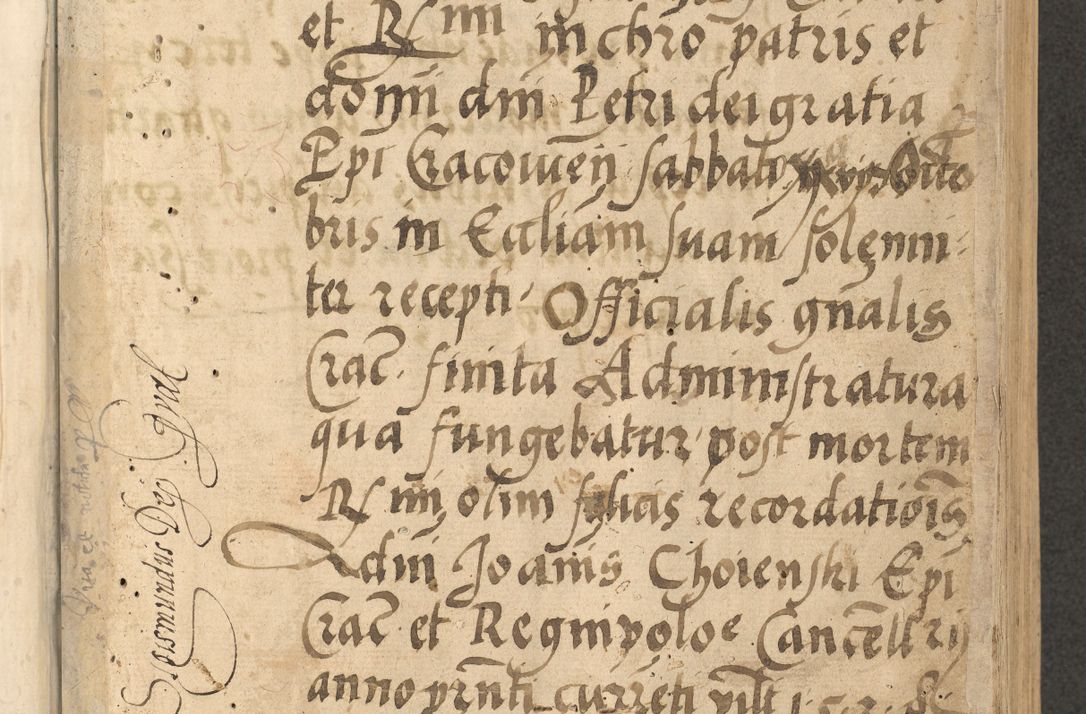 et R mi in chro patris et
domi dni Petri dei gratia
Epi Cracowien sabbati Octo
bris in Eccliam suam solemni-
ter recepti Officialis gnalis
Crac finita Administratura
qua fungebatur post mortem
R mi olim felicis recordationis
dni Joanis Choienski Epi
Crac et Regni polo Cancellrij
anno prnti
Sigismundus Dei Gra